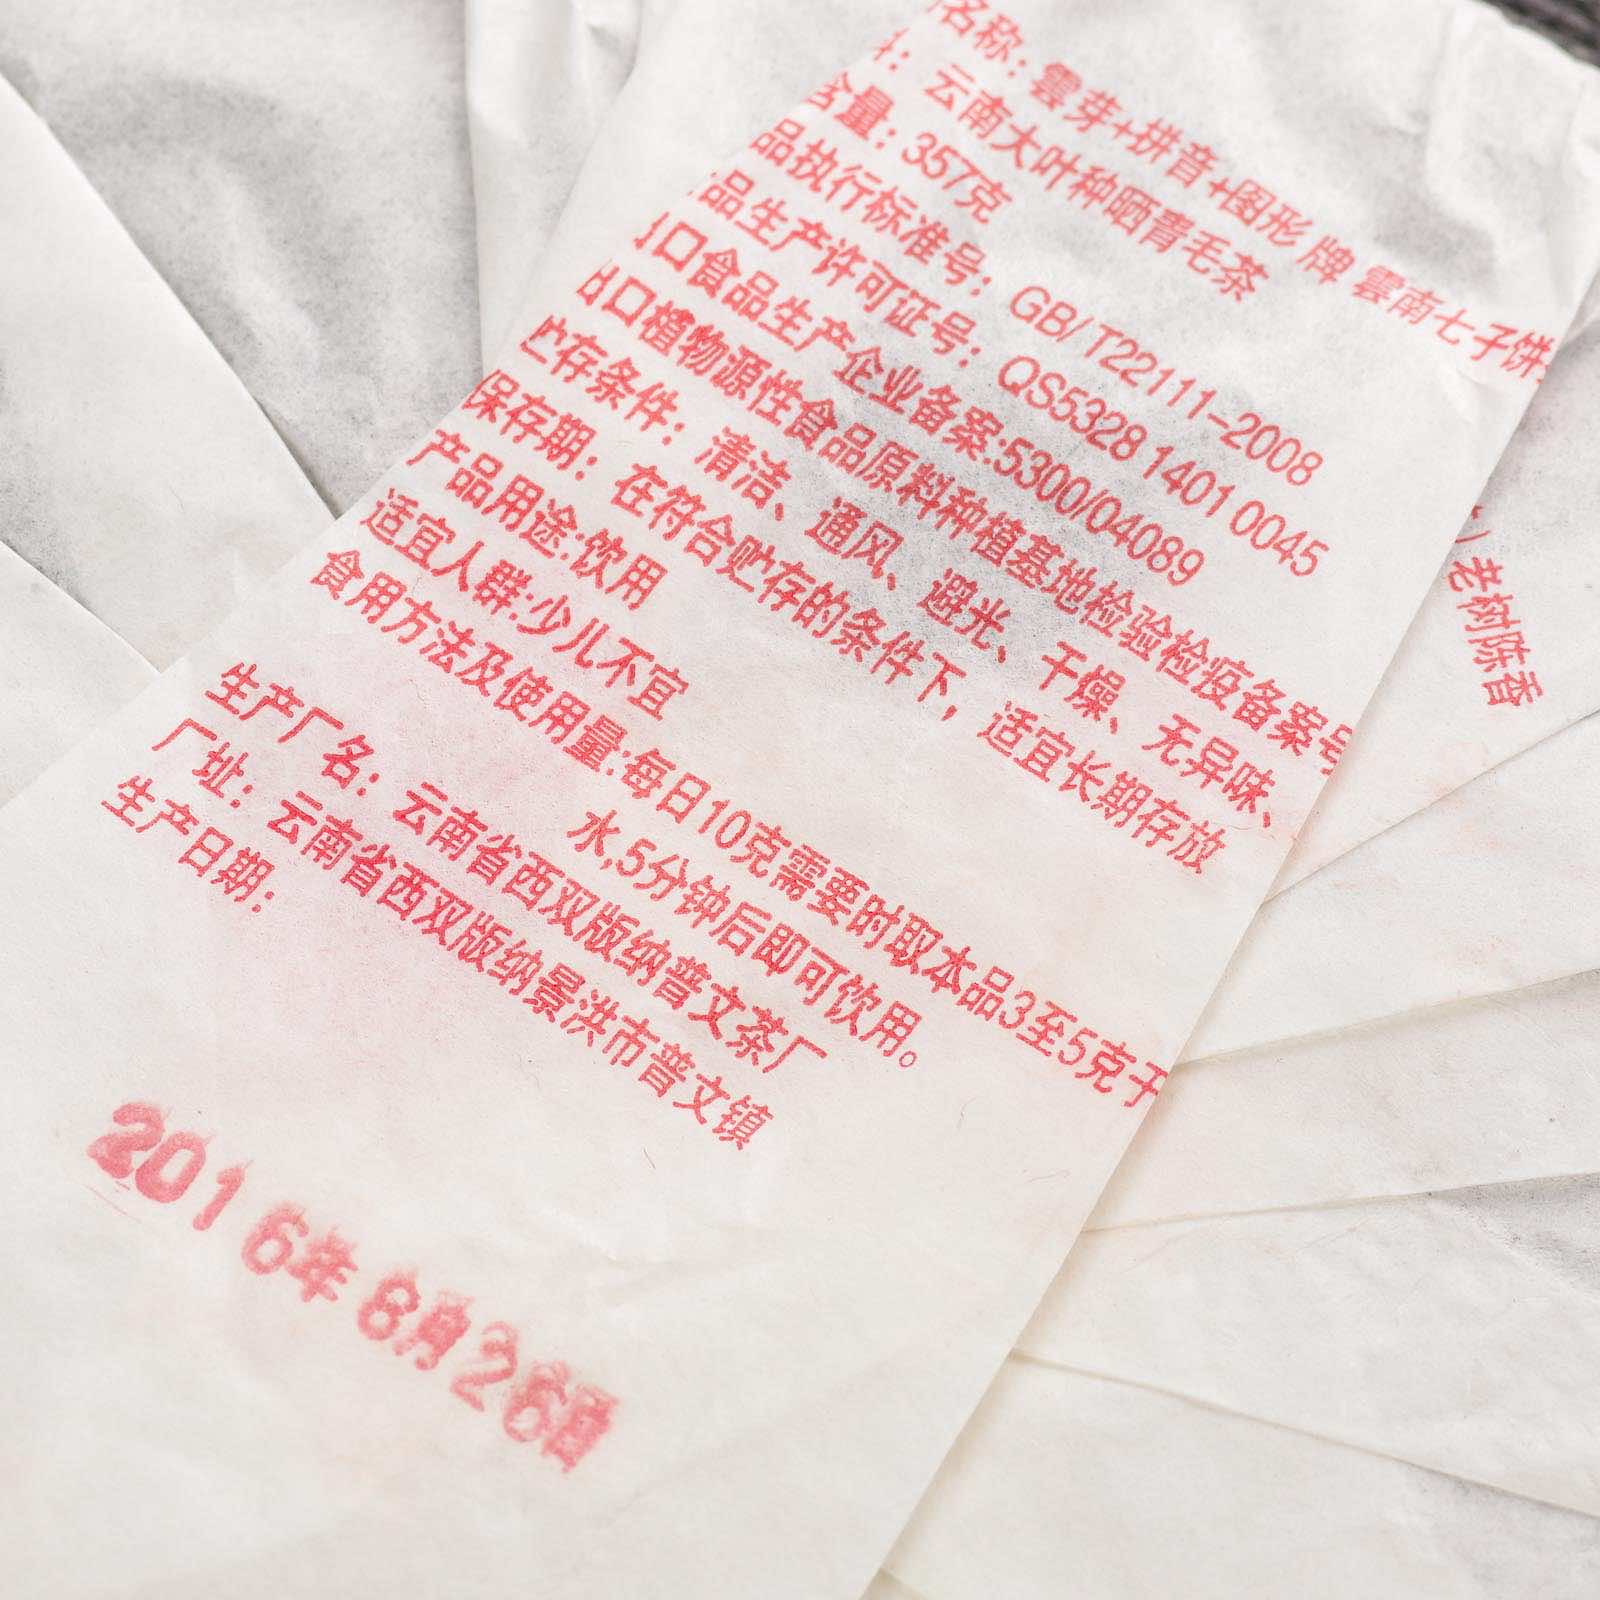 名称: 雲芽+拼音+图形 牌 雲南七子饼
料: 云南大叶种晒青毛茶
含量: 357克
品执行标准号: GB/T22111-2008
品生产许可证号: QS5328 1401 0045
口食品生产企业备案:5300/04089
出口植物源性食品原料种植基地检验检疫备案号
贮存条件: 清洁、通风、避光、干燥、无异味、
保存期: 在符合贮存的条件下，适宜长期存放
产品用途:饮用
适宜人群:少儿不宜
食用方法及使用量:每日10克需要时取本品3至5克于
水,5分钟后即可饮用。
生产厂名: 云南省西双版纳普文茶厂
厂址: 云南省西双版纳景洪市普文镇
生产日期:
2016年8月26日
) 老树陈香